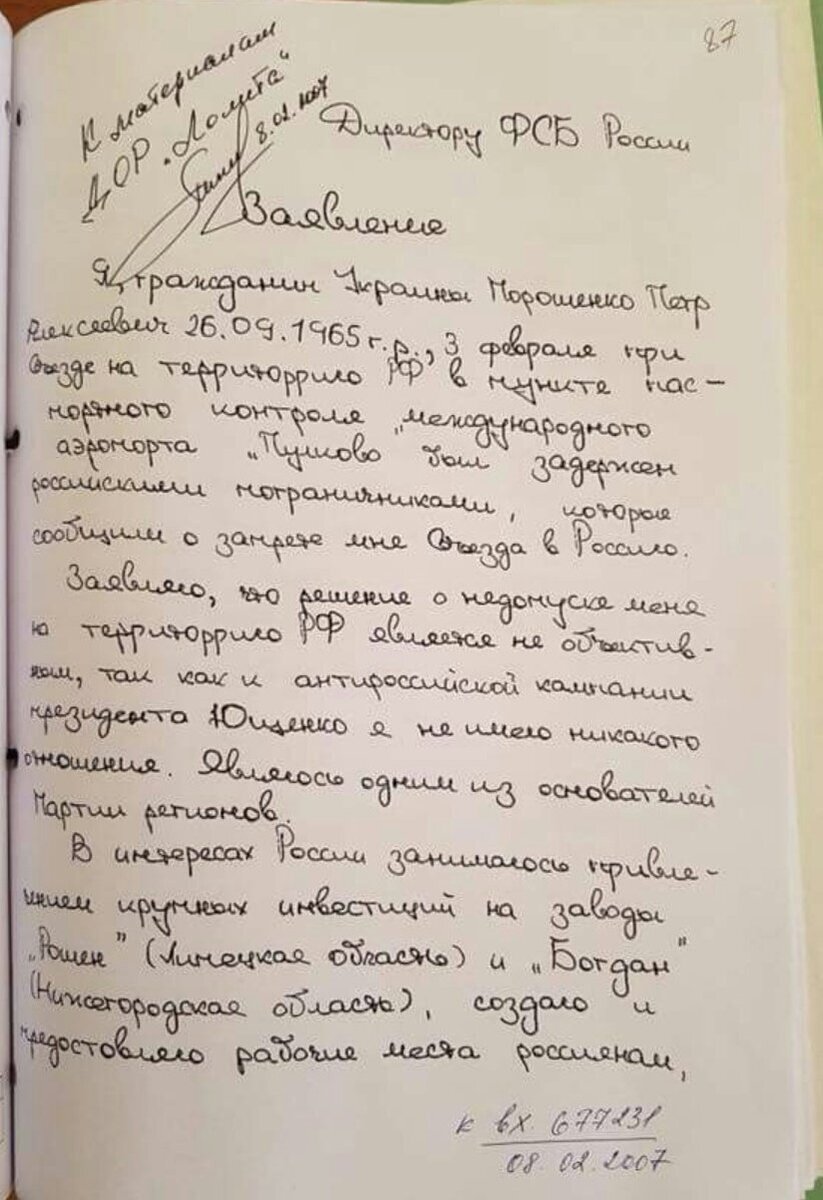 87
К материалам
ДОР „Лолита“
8.02.2007
Директору ФСБ России
Заявление
Я, гражданин Украины Порошенко Петр
Алексеевич 26.09.1965 г.р., 3 февраля при
въезде на территоррию РФ в пункте пас-
портного контроля „международного
аэропорта „Пулково был задержен
российскими пограничниками, которые
сообщили о запрете мне въезда в Россию.
Заявляю, что решение о недопуске меня
на территоррию РФ является не объектив-
ным, так как к антироссийской кампании
президента Ющенко я не имею никакого
отношения. Являюсь одним из основателей
Партии регионов.
В интересах России занимаюсь привле-
чением крупных инвестиций на заводы
„Рошен” (Липецкая область) и „Богдан”
(Нижегородская область), создаю и
предостовляю рабочие места россиянам,
к вх. 677231
08.02.2007